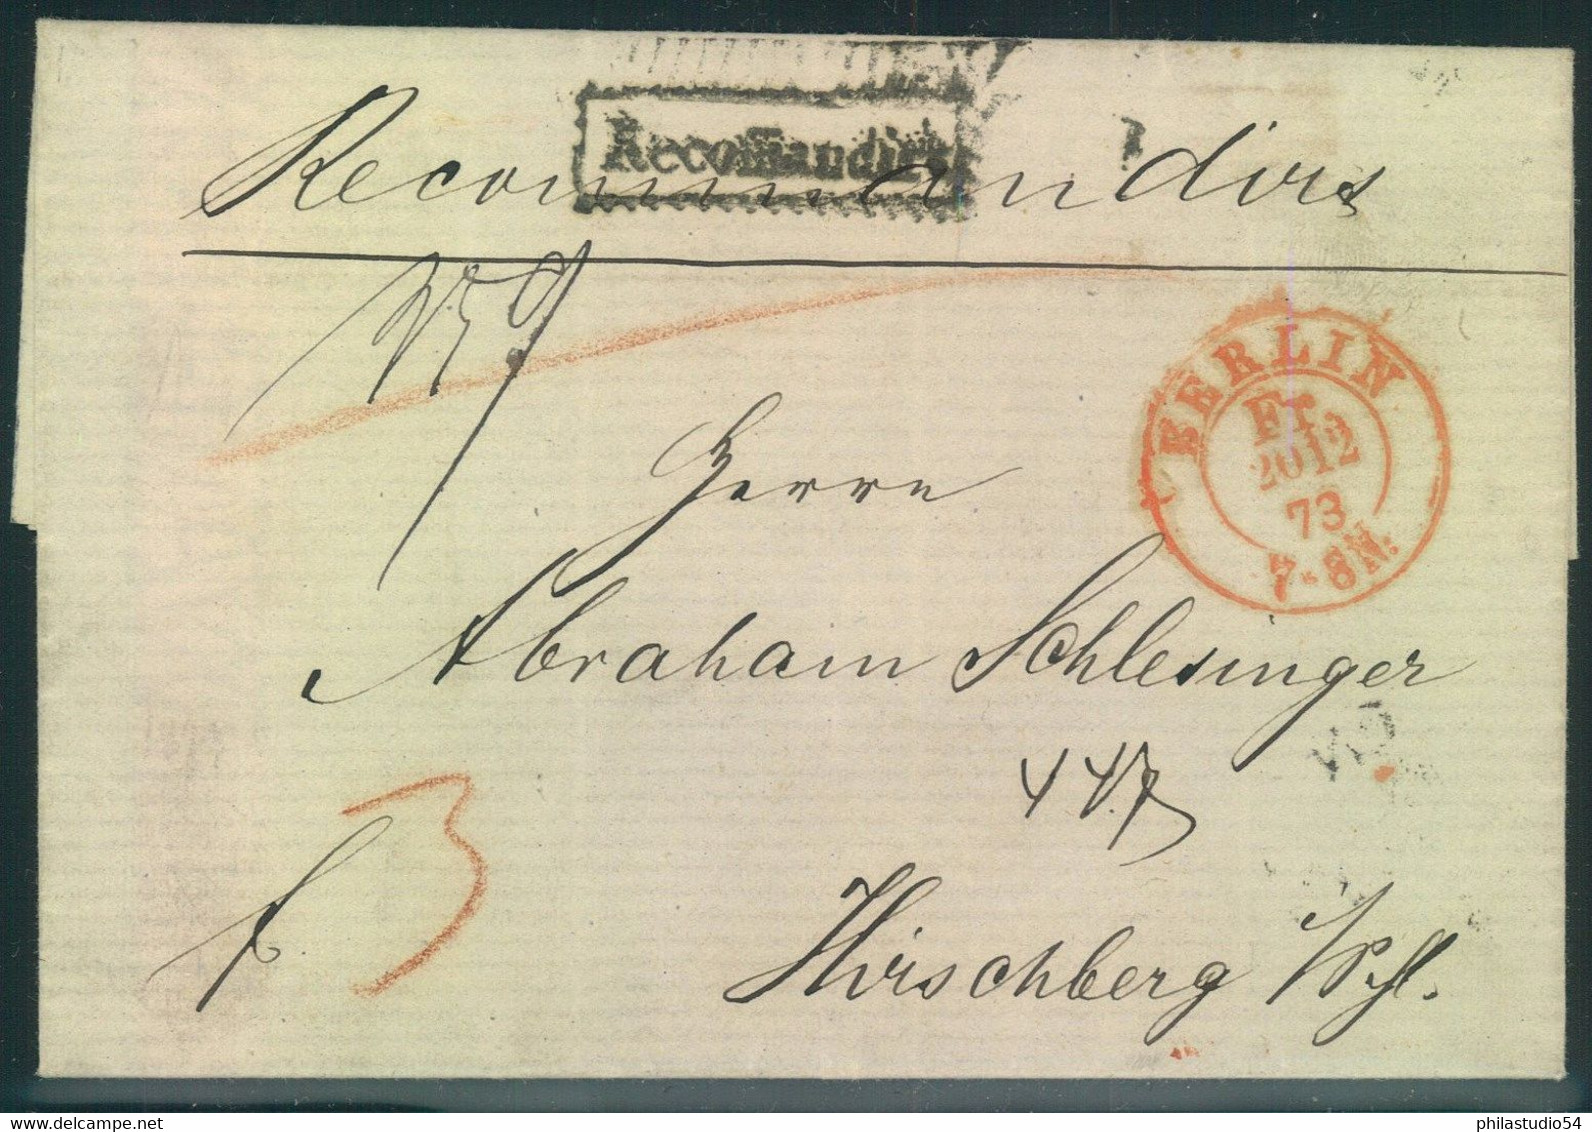 Recommandirt
Recommandirt
BERLIN
Fr.
20 12
73
7-8N.
Herrn
Abraham Schlesinger
447
3
Hirschberg /Schl.
philastudio54